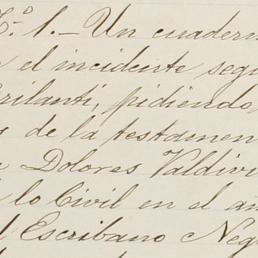 Nº 1.- Un cuadern
el incidente segu
rilanti, pidiendo
de la testamen
Dolores Valdivi
lo Civil en el a
Escribano Neg